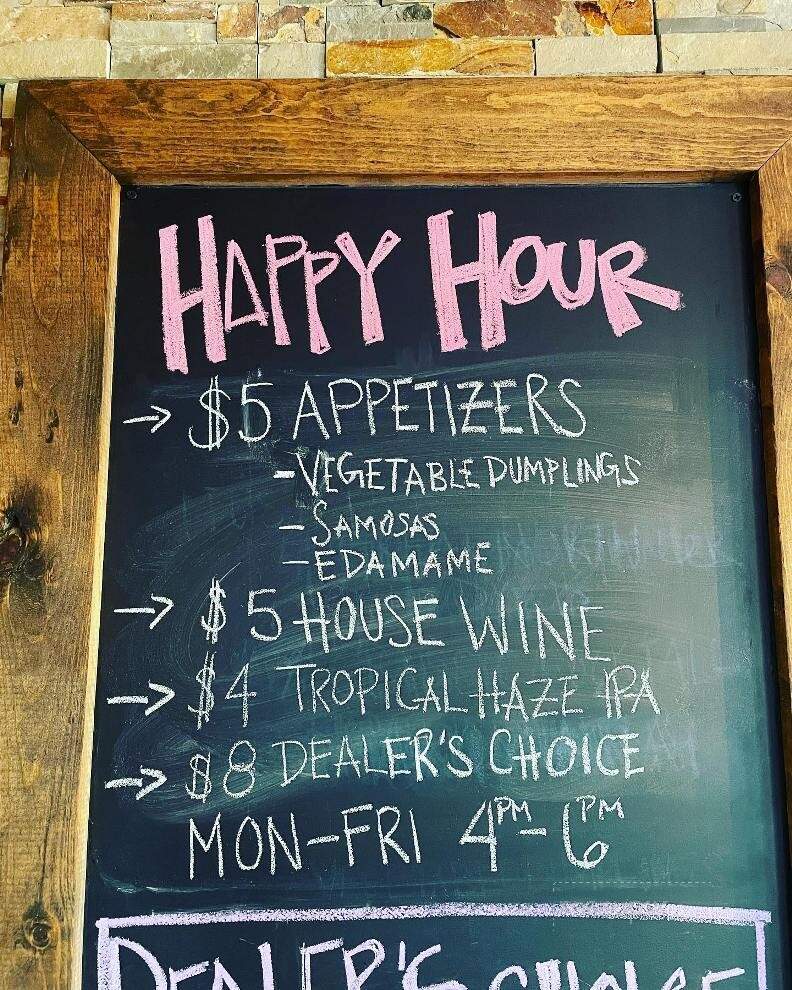 HAPPY HOUR
→ $5 APPETIZERS
- VEGETABLE DUMPLINGS
- SAMOSAS
- EDAMAME
→ $5 HOUSE WINE
→ $4 TROPICAL HAZE IPA
→ $8 DEALER'S CHOICE
MON-FRI 4PM-6PM
DEALER'S CHOICE